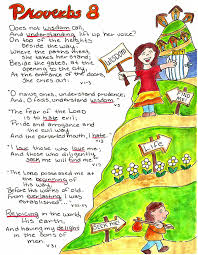 Proverbs 8
Does not wisdom call,
And understanding lift up her voice?
On top of the heights
beside the way,
Where the paths meet,
she takes her stand;
Beside the gates, at the
opening to the city,
At the entrance of the doors,
she cries out:
V1-3
"O naive ones, understand prudence;
And, O fools, understand wisdom.
V5
"The fear of the Lord
is to hate evil;
Pride and arrogance and
the evil way
And the perverted mouth, I hate."
V13
"I love those who love me;
And those who diligently
seek me will find me.
V17
"The Lord possessed me at
the beginning of
His way,
Before His works of old.
From everlasting I was
established,
V22-23
Rejoicing in the world,
His earth,
And having my delight
in the sons of
men.
V31
WISDOM!
FIND ME
Life
SEEK ME